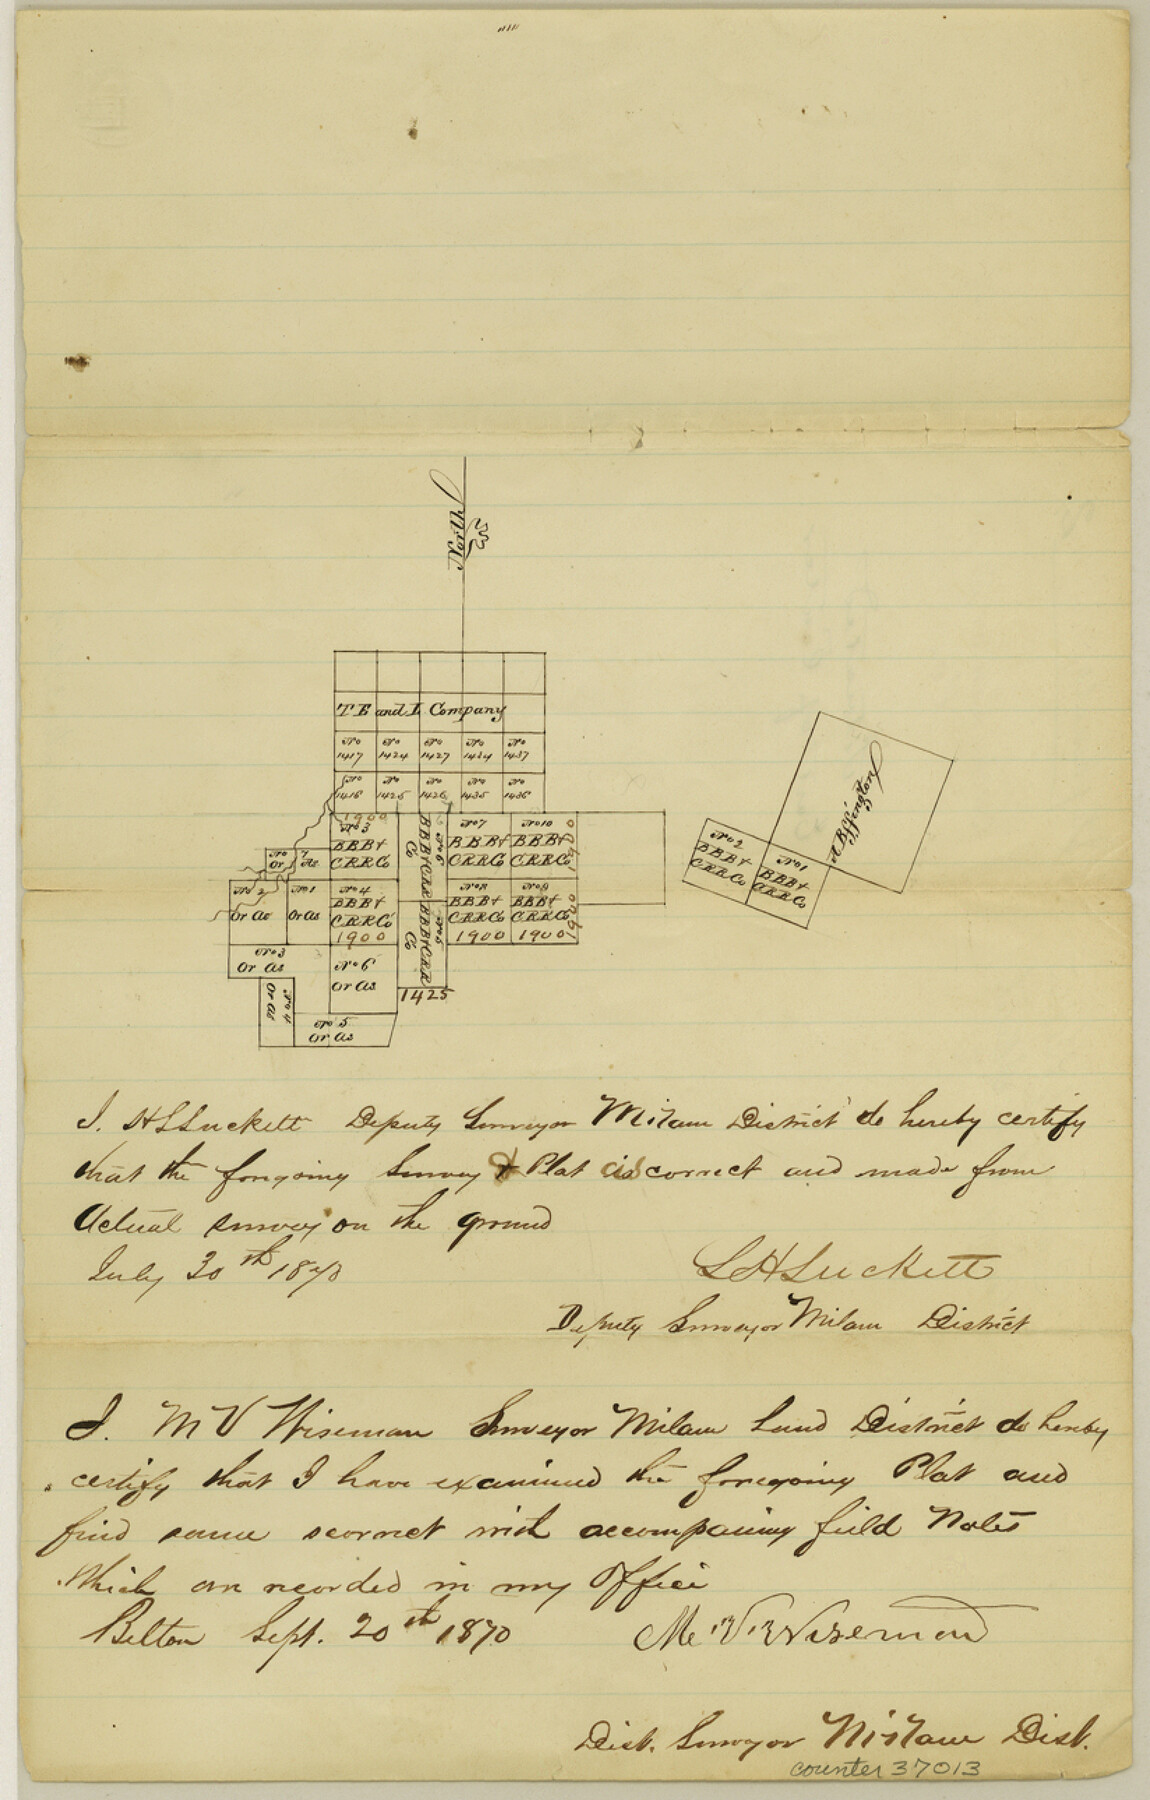 North
T E and L Company
No 1417
No 1424
No 1427
No 1434
No 1437
No 1416
No 1425
No 1426
No 1435
No 1436
1900
No 3
BBB+
CRRCo
No 6
BBB+CRR
Co
No 7
BBB+
CRRCo
No 10
BBB+
CRRCo
1900
No 7
Or As
No 2
Or As
No 1
Or As
No 4
BBB+
CRRCo
1900
No 5
BBB+CRR
Co
1425
No 8
BBB+
CRRCo
1900
No 9
BBB+
CRRCo
1900
1900
No 3
Or As
No 6
Or As
No 4
Or As
No 5
Or As
No 2
BBB+
CRRCo
No 1
BBB+
CRRCo
I. H L Luckett Deputy Surveyor Milam District do hereby certify
that the foregoing Survey & Plat is correct and made from
Actual survey on the ground
July 30th 1870
L H Luckett
Deputy Surveyor Milam District
I. M V Wiseman Surveyor Milam Land District do hereby
certify that I have examined the foregoing Plat and
find same scorrect with accompaning field Notes
Which are recorded in my Office
Belton Sept. 20th 1870
M. V. Wiseman
Dist. Surveyor Milam Dist.
counter 37013